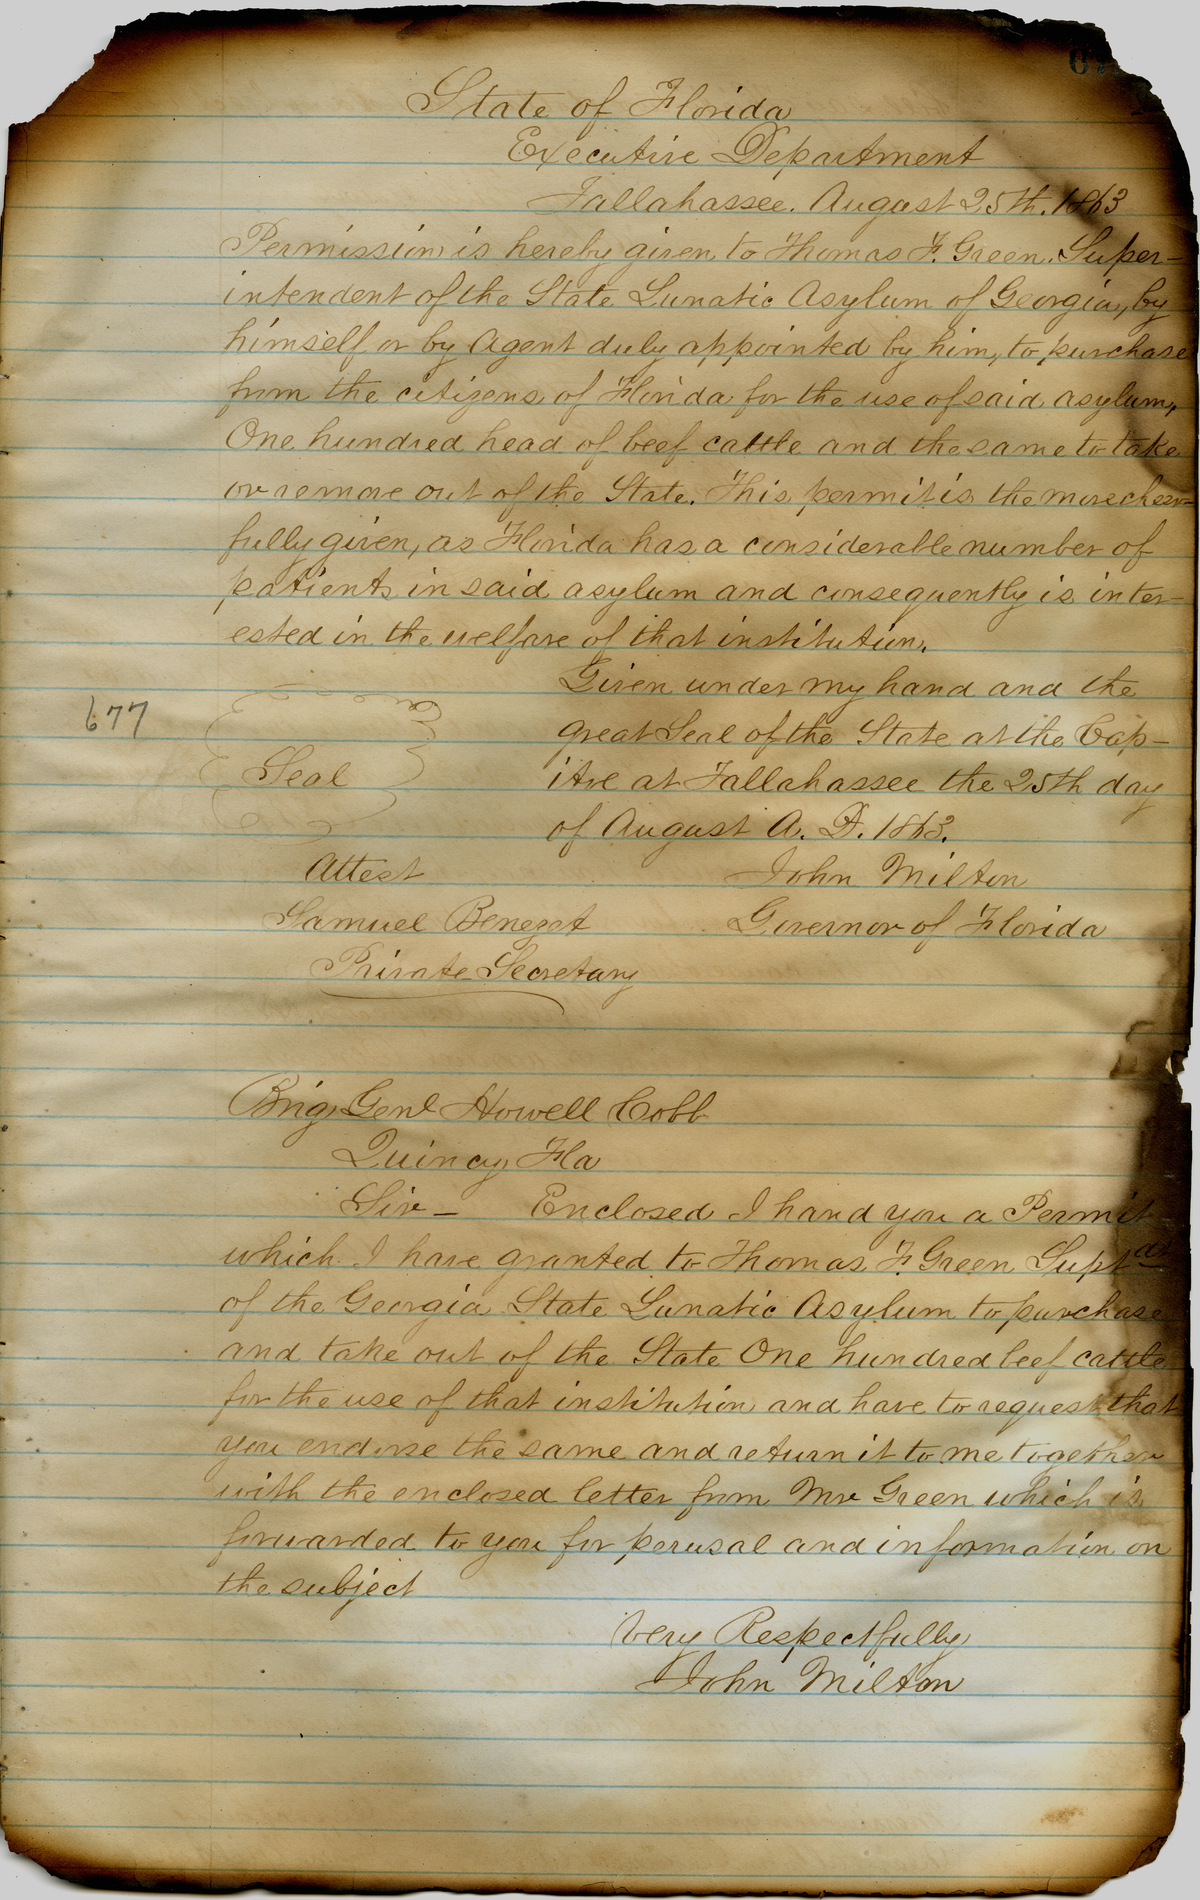 State of Florida
Executive Department
Tallahassee. August 25th. 1863
Permission is hereby given to Thomas F. Green. Super-
intendent of the State Lunatic Asylum of Georgia, by
himself or by Agent duly appointed by him, to purchase
from the citizens of Florida for the use of said asylum,
One hundred head of beef cattle and the same to take
or remove out of the State. This permit is the more cheer-
fully given, as Florida has a considerable number of
patients in said asylum and consequently is inter-
ested in the welfare of that institution.
Given under my hand and the
great Seal of the State at the Cap-
677
Seal
itol at Tallahassee the 25th day
of August A. D. 1863.
Attest
John Milton
Samuel Benezet
Governor of Florida
Private Secretary
Brig Genl Howell Cobb
Quincy Fla
Sir - Enclosed I hand you a Permit
which I have granted to Thomas F. Green Supt
of the Georgia State Lunatic Asylum to purchase
and take out of the State One hundred beef cattle
for the use of that institution and have to request that
you endorse the same and return it to me together
with the enclosed letter from Mr Green which is
forwarded to you for perusal and information on
the subject
Very Respectfully
John Milton